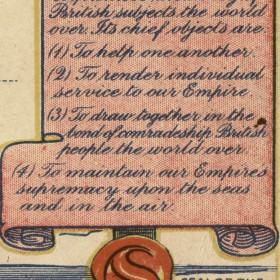 British subjects the world
over. Its chief objects are:
(1) To help one another.
(2) To render individual
service to our Empire.
(3) To draw together in the
bond of comradeship British
people the world over.
(4) To maintain our Empire's
supremacy upon the seas
and in the air.
S